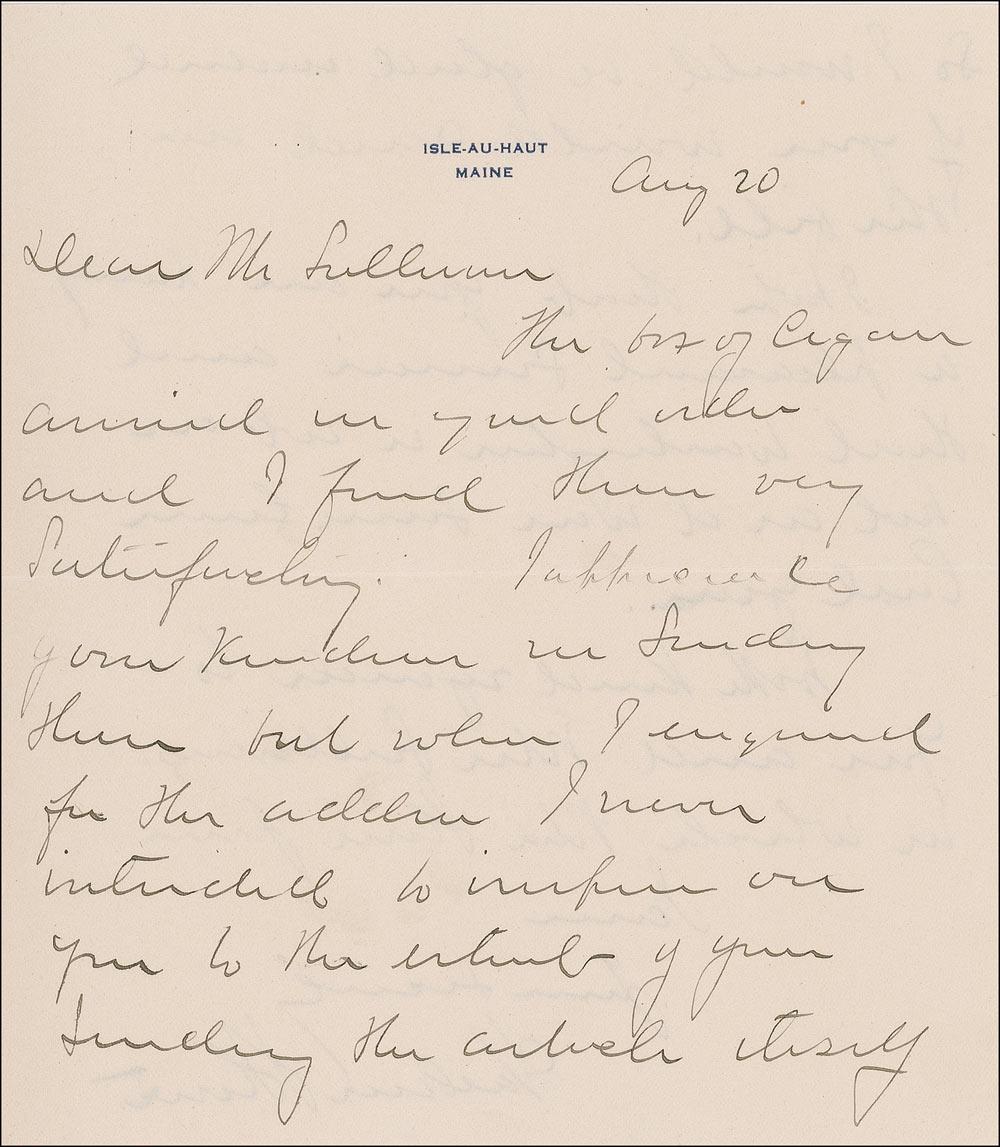 ISLE-AU-HAUT
MAINE
Aug 20
Dear Mr Sullivan
The box of Cigars
arrived in good order
and I find them very
Satisfactory. I appreciate
your kindness in Sending
them but when I enquired
for the address I never
intended to impose on
you to the extent of your
Sending the article itself